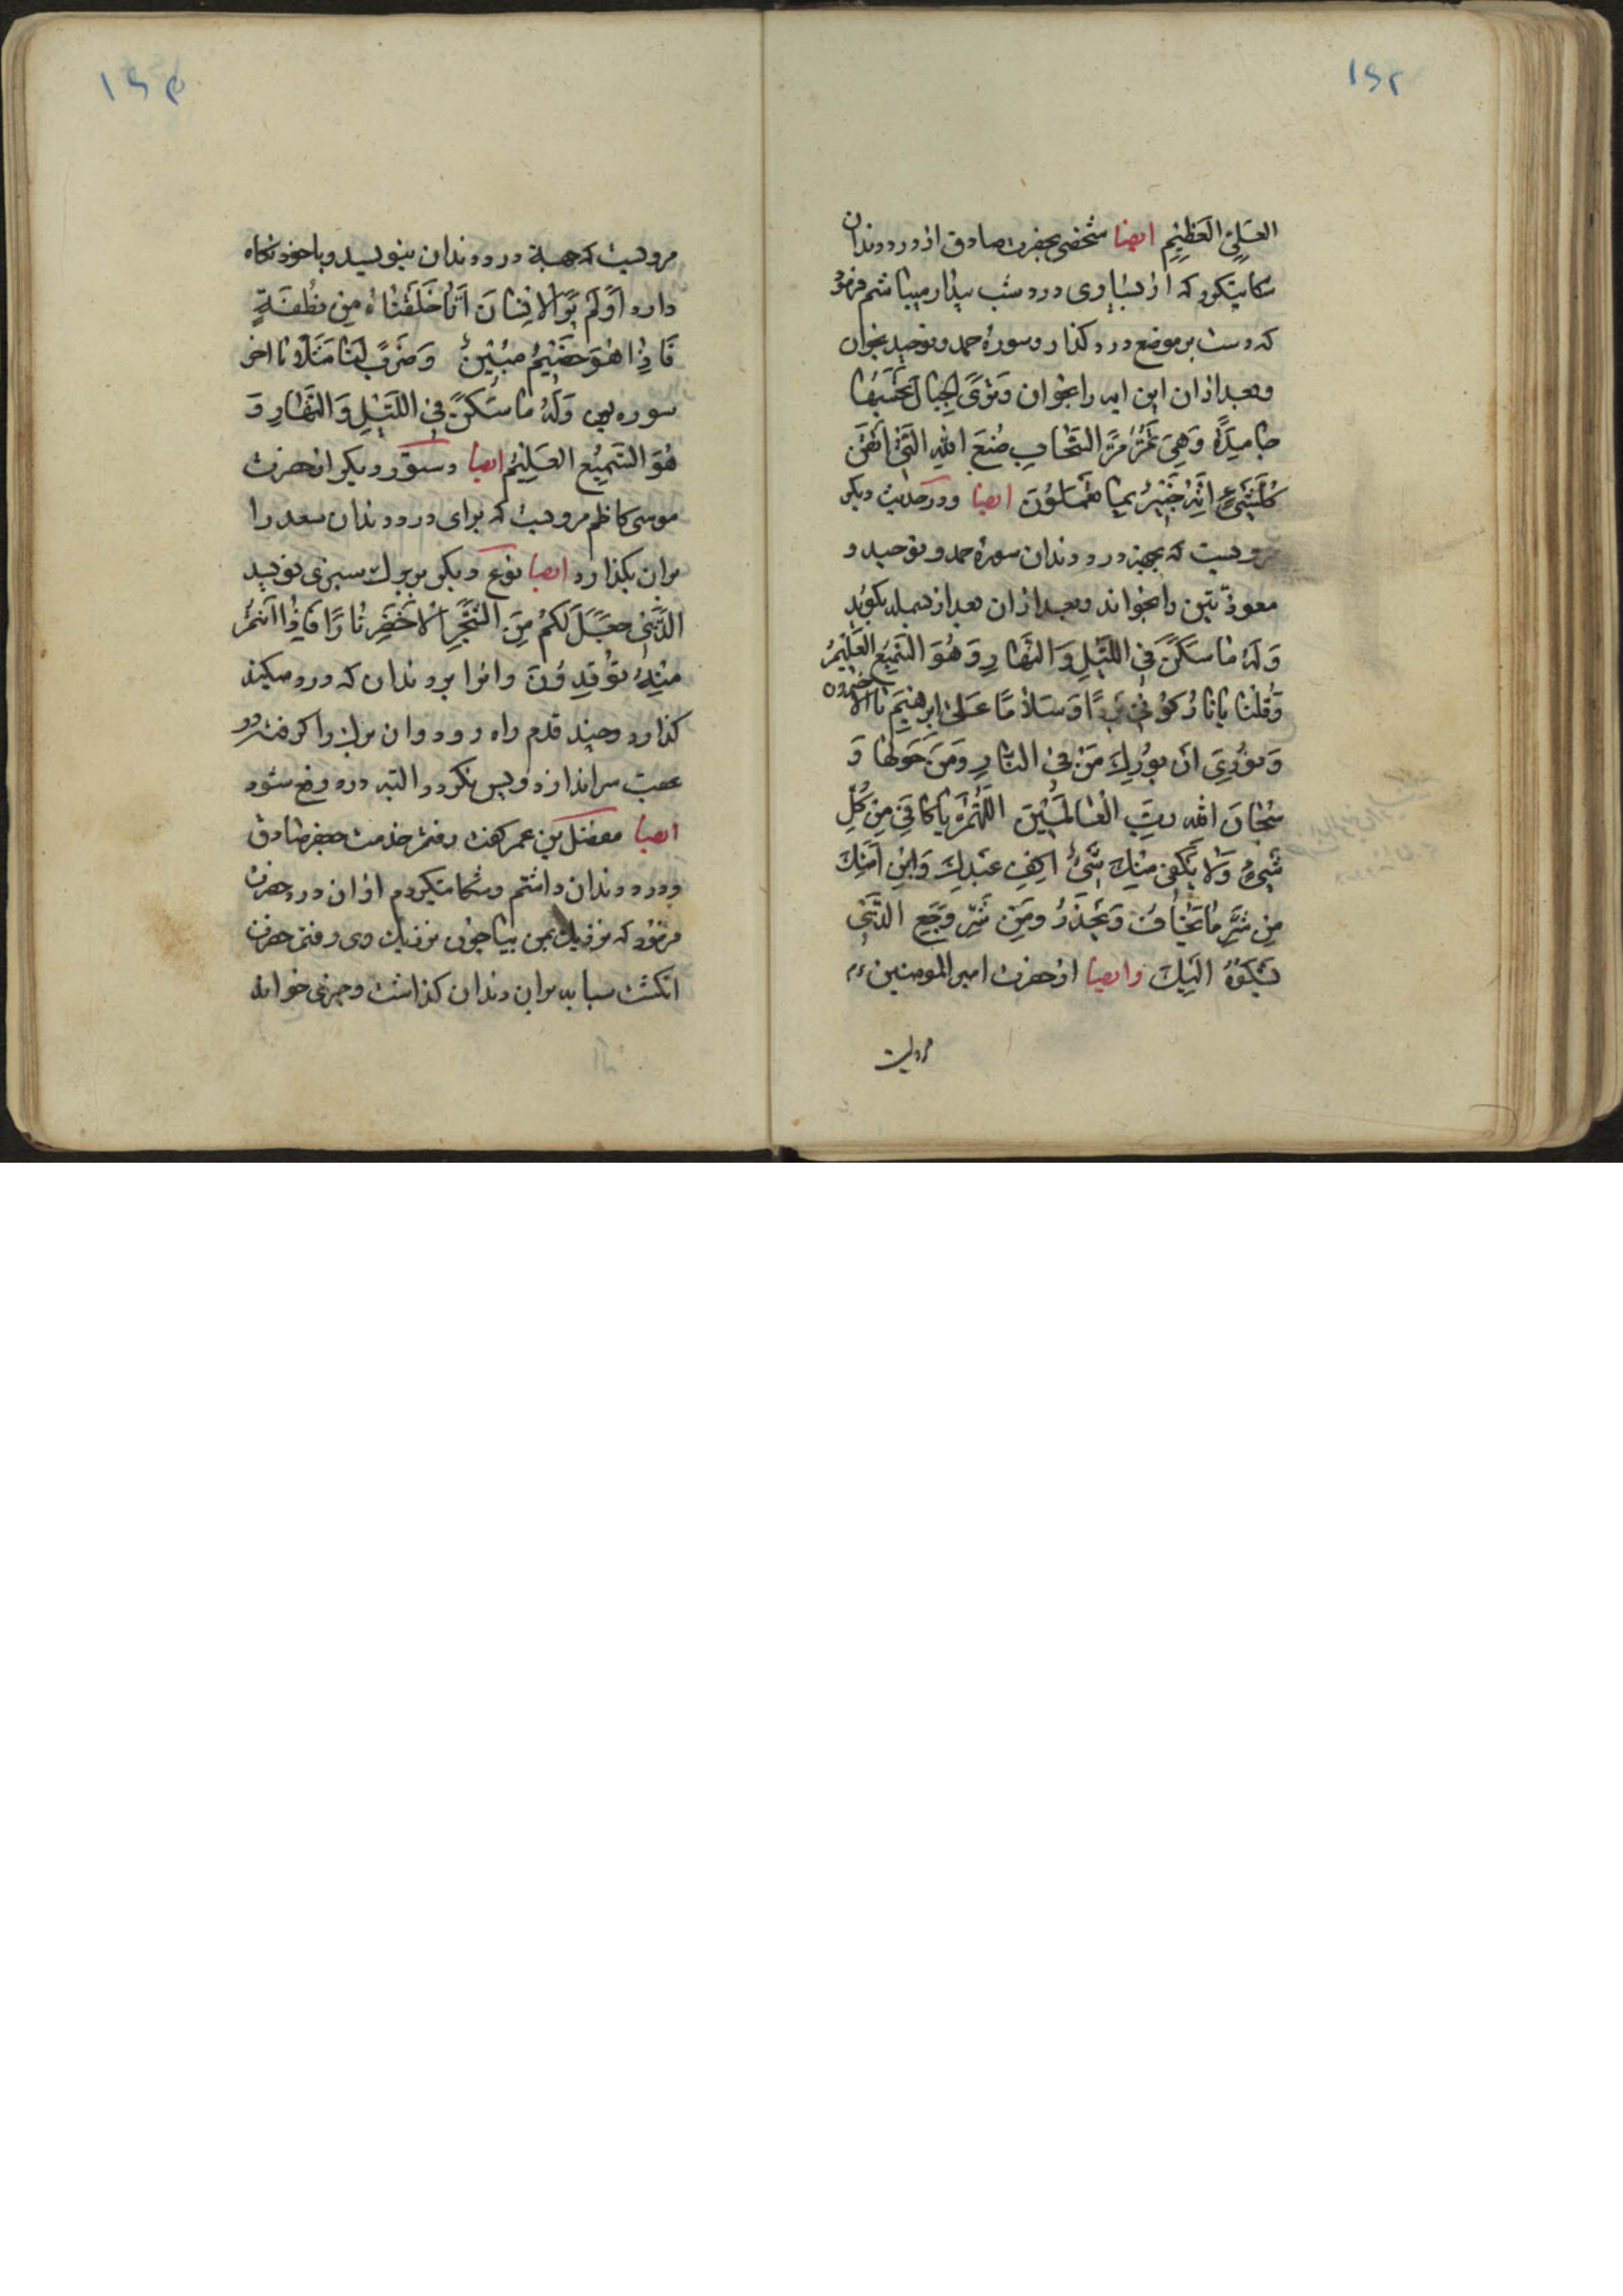 ۱۵۲
العَلِیِّ العَظیِمِ ایضا شخصی بحضرت صادق از درد دندان
شکایتکرد که از بسیاری درد شب بیدار میباشم فرمود
که دست بر موضع درد گذار و سورهٔ حمد و توحید بخوان
و بعد از ان این ایه را بخوان وَتَرَی الجِبالَ تَحْسَبُها
جامِدَةً وَهِیَ تَمُرُّ مَرَّ السَّحٰابِ صُنعَ اللهِ الَّذی اَتْقَنَ
کُلَّشَیْءٍ اِنَّهُ خَبیرٌ بِمٰا تَفْعَلُونَ ایضا و در حدیث دیگر
مرویست که بجهة درد دندان سورهٔ حمد و توحید و
معوذّتین را بخواند و بعد از ان بعد از بسمله بگوید
وَلَهُ مٰا سَکَنَ فِی اللَّیْلِ وَالنَّهارِ وَهُوَ السَّمیعُ العَلیمُ
وَقُلنٰا یا نٰارُ کوُنی بَردًا وَسَلاٰمًا عَلیٰ اِبرٰهیمَ تا الاخسرون
وَ نوُدِیَ اَن بوُرِكَ مَنْ فِی النّٰارِ وَمَن حَولَها وَ
سُبحٰانَ الله رَبِّ الْعٰالَمینَ اللّٰهُمَّ یا کافی مِن کُلِّ
شَیْءٍ وَلاٰ یَکْفی مِنْكَ شَیْءٌ اکْفِ عَبْدِكَ وَابْنِ اَمَتِكَ
مِن شَرِّ مٰا یَخٰافُ وَیَحْذَرُ وَمِن شَرِّ وَجَعِ الَّذی
یَشکوُهُ اِلَیكَ وایضا از حضرت امیر المومنین ع م
مرویست
۱۵۳
مرویست که جهة درد دندان بنویسد و با خود نگاه
دارد اَوَلَم یَرَ الاِنسٰانَ اَنّٰا خَلَقنٰاهُ مِن نُطْفَةٍ
فَاِذٰا هُوَ خَصیمٌ مُبینٌ وَضَرَبَ لَنٰا مَثَلاً تا اخر
سوره یس وَلَهُ مٰا سَکَنَ فِی اللَّیْلِ وَالنَّهٰارِ وَ
هُوَ السَّمیعُ العَلیمُ ایضا دستور دیگر از حضرت
موسی کاظم مرویست که برای درد دندان سعد را
بران بگذارد ایضا نوع دیگر بر برك سبزی نویسد
الَّذی جَعَلَ لَکُم مِنَ الشَّجَرِ الاَخضَرِ نٰارًا فَاِذٰا اَنتُم
مِنهُ توُقِدوُنَ وانرا بر دندان که درد میکند
گذارد و چند قدم راه رود و ان برك را گرفته در
عقب سر اندازد و پس نگردد البته درد رفع شود
ایضا مفضل بن عمر گفت رفتم خدمت جعفر صادق
و درد دندان داشتم و شکایتکردم از ان درد حضرت
فرمود که نزدیك بمن بیا چون نزدیك وی رفتم حضرت
انگشت سبابه بر ان دندان گذاشت و چیزی خواند